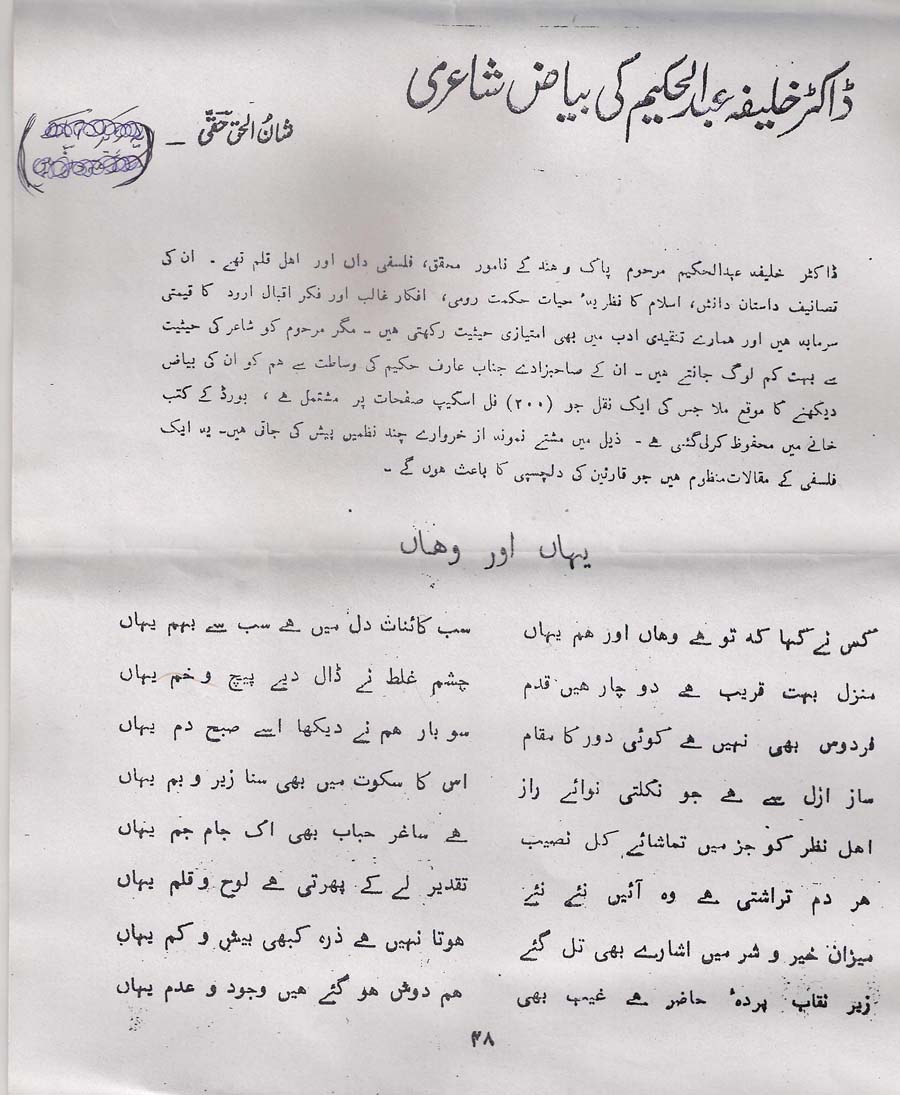 ڈاکٹر خلیفہ عبدالحکیم کی بیاض شاعری
شان الحق حقی ـ
ڈاکٹر خلیفہ عبدالحکیم مرحوم پاک و ہند کے نامور محقق، فلسفی داں اور اہل قلم تھے ۔ ان کی
تصانیف داستان دانش، اسلام کا نظریۂ حیات حکمت رومی، افکار غالب اور فکر اقبال اردو کا قیمتی
سرمایہ ہیں اور ہمارے تنقیدی ادب میں بھی امتیازی حیثیت رکھتی ہیں ۔ مگر مرحوم کو شاعر کی حیثیت
سے بہت کم لوگ جانتے ہیں ۔ ان کے صاحبزادے جناب عارف حکیم کی وساطت سے ہم کو ان کی بیاض
دیکھنے کا موقع ملا جس کی ایک نقل جو (۲۰۰) فل اسکیپ صفحات پر مشتمل ہے ، بورڈ کے کتب
خانے میں محفوظ کرلی گئی ہے ۔ ذیل میں مشتے نمونہ از خروارے چند نظمیں پیش کی جاتی ہیں۔ یہ ایک
فلسفی کے مقالات منظوم ہیں جو قارئین کی دلچسپی کا باعث ہوں گے ۔
یہاں اور وہاں
کس نے کہا کہ تو ہے وہاں اور ہم یہاں سب کائنات دل میں ہے سب سے بہم یہاں
منزل بہت قریب ہے دو چار ہیں قدم چشم غلط نے ڈال دیے پیچ و خم یہاں
فردوس بھی نہیں ہے کوئی دور کا مقام سو بار ہم نے دیکھا اسے صبح دم یہاں
ساز ازل سے ہے جو نکلتی نوائے راز اس کا سکوت میں بھی سنا زیر و بم یہاں
اہل نظر کو جز میں تماشائے کل نصیب ہے ساغر حباب بھی اک جام جم یہاں
ہر دم تراشتی ہے وہ آئیں نئے نئے تقدیر لے کے پھرتی ہے لوح و قلم یہاں
میزان خیر و شر میں اشارے بھی تل گئے ہوتا نہیں ہے ذرہ کبھی بیش و کم یہاں
زیر نقاب پردۂ حاضر ہے غیب بھی ہم دوش ہو گئے ہیں وجود و عدم یہاں
۴۸